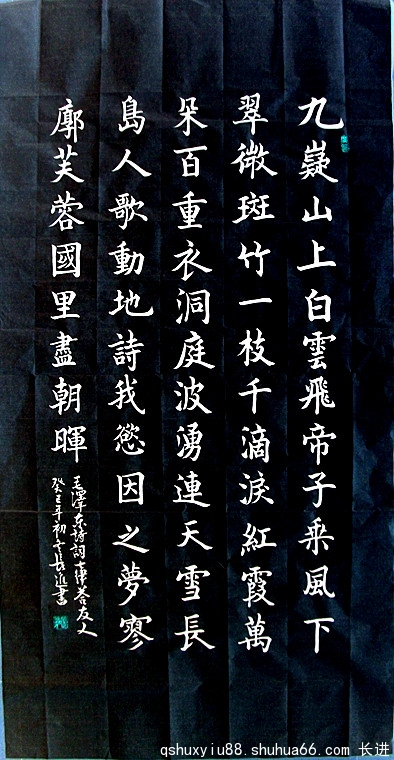 九嶷山上白雲飛帝子乗風下
翠微斑竹一枝千滴淚紅霞萬
朵百重衣洞庭波湧連天雪長
島人歌動地詩我慾因之夢寥
廓芙蓉國里盡朝暉
毛澤东詩詞七律荅友人
癸巳年初冬長進書
qshuxyiu88.shuhua66.com 长进